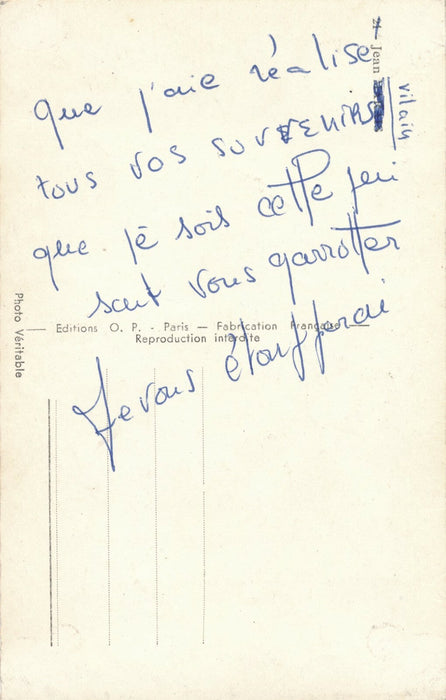 Que j'aie réalisé
tous vos souvenirs
que je sois cette qui
sait vous garrotter
Je vous étoufferai
21 - Jean
vilain
Photo Véritable
Editions O. P. - Paris — Fabrication Française
Reproduction interdite